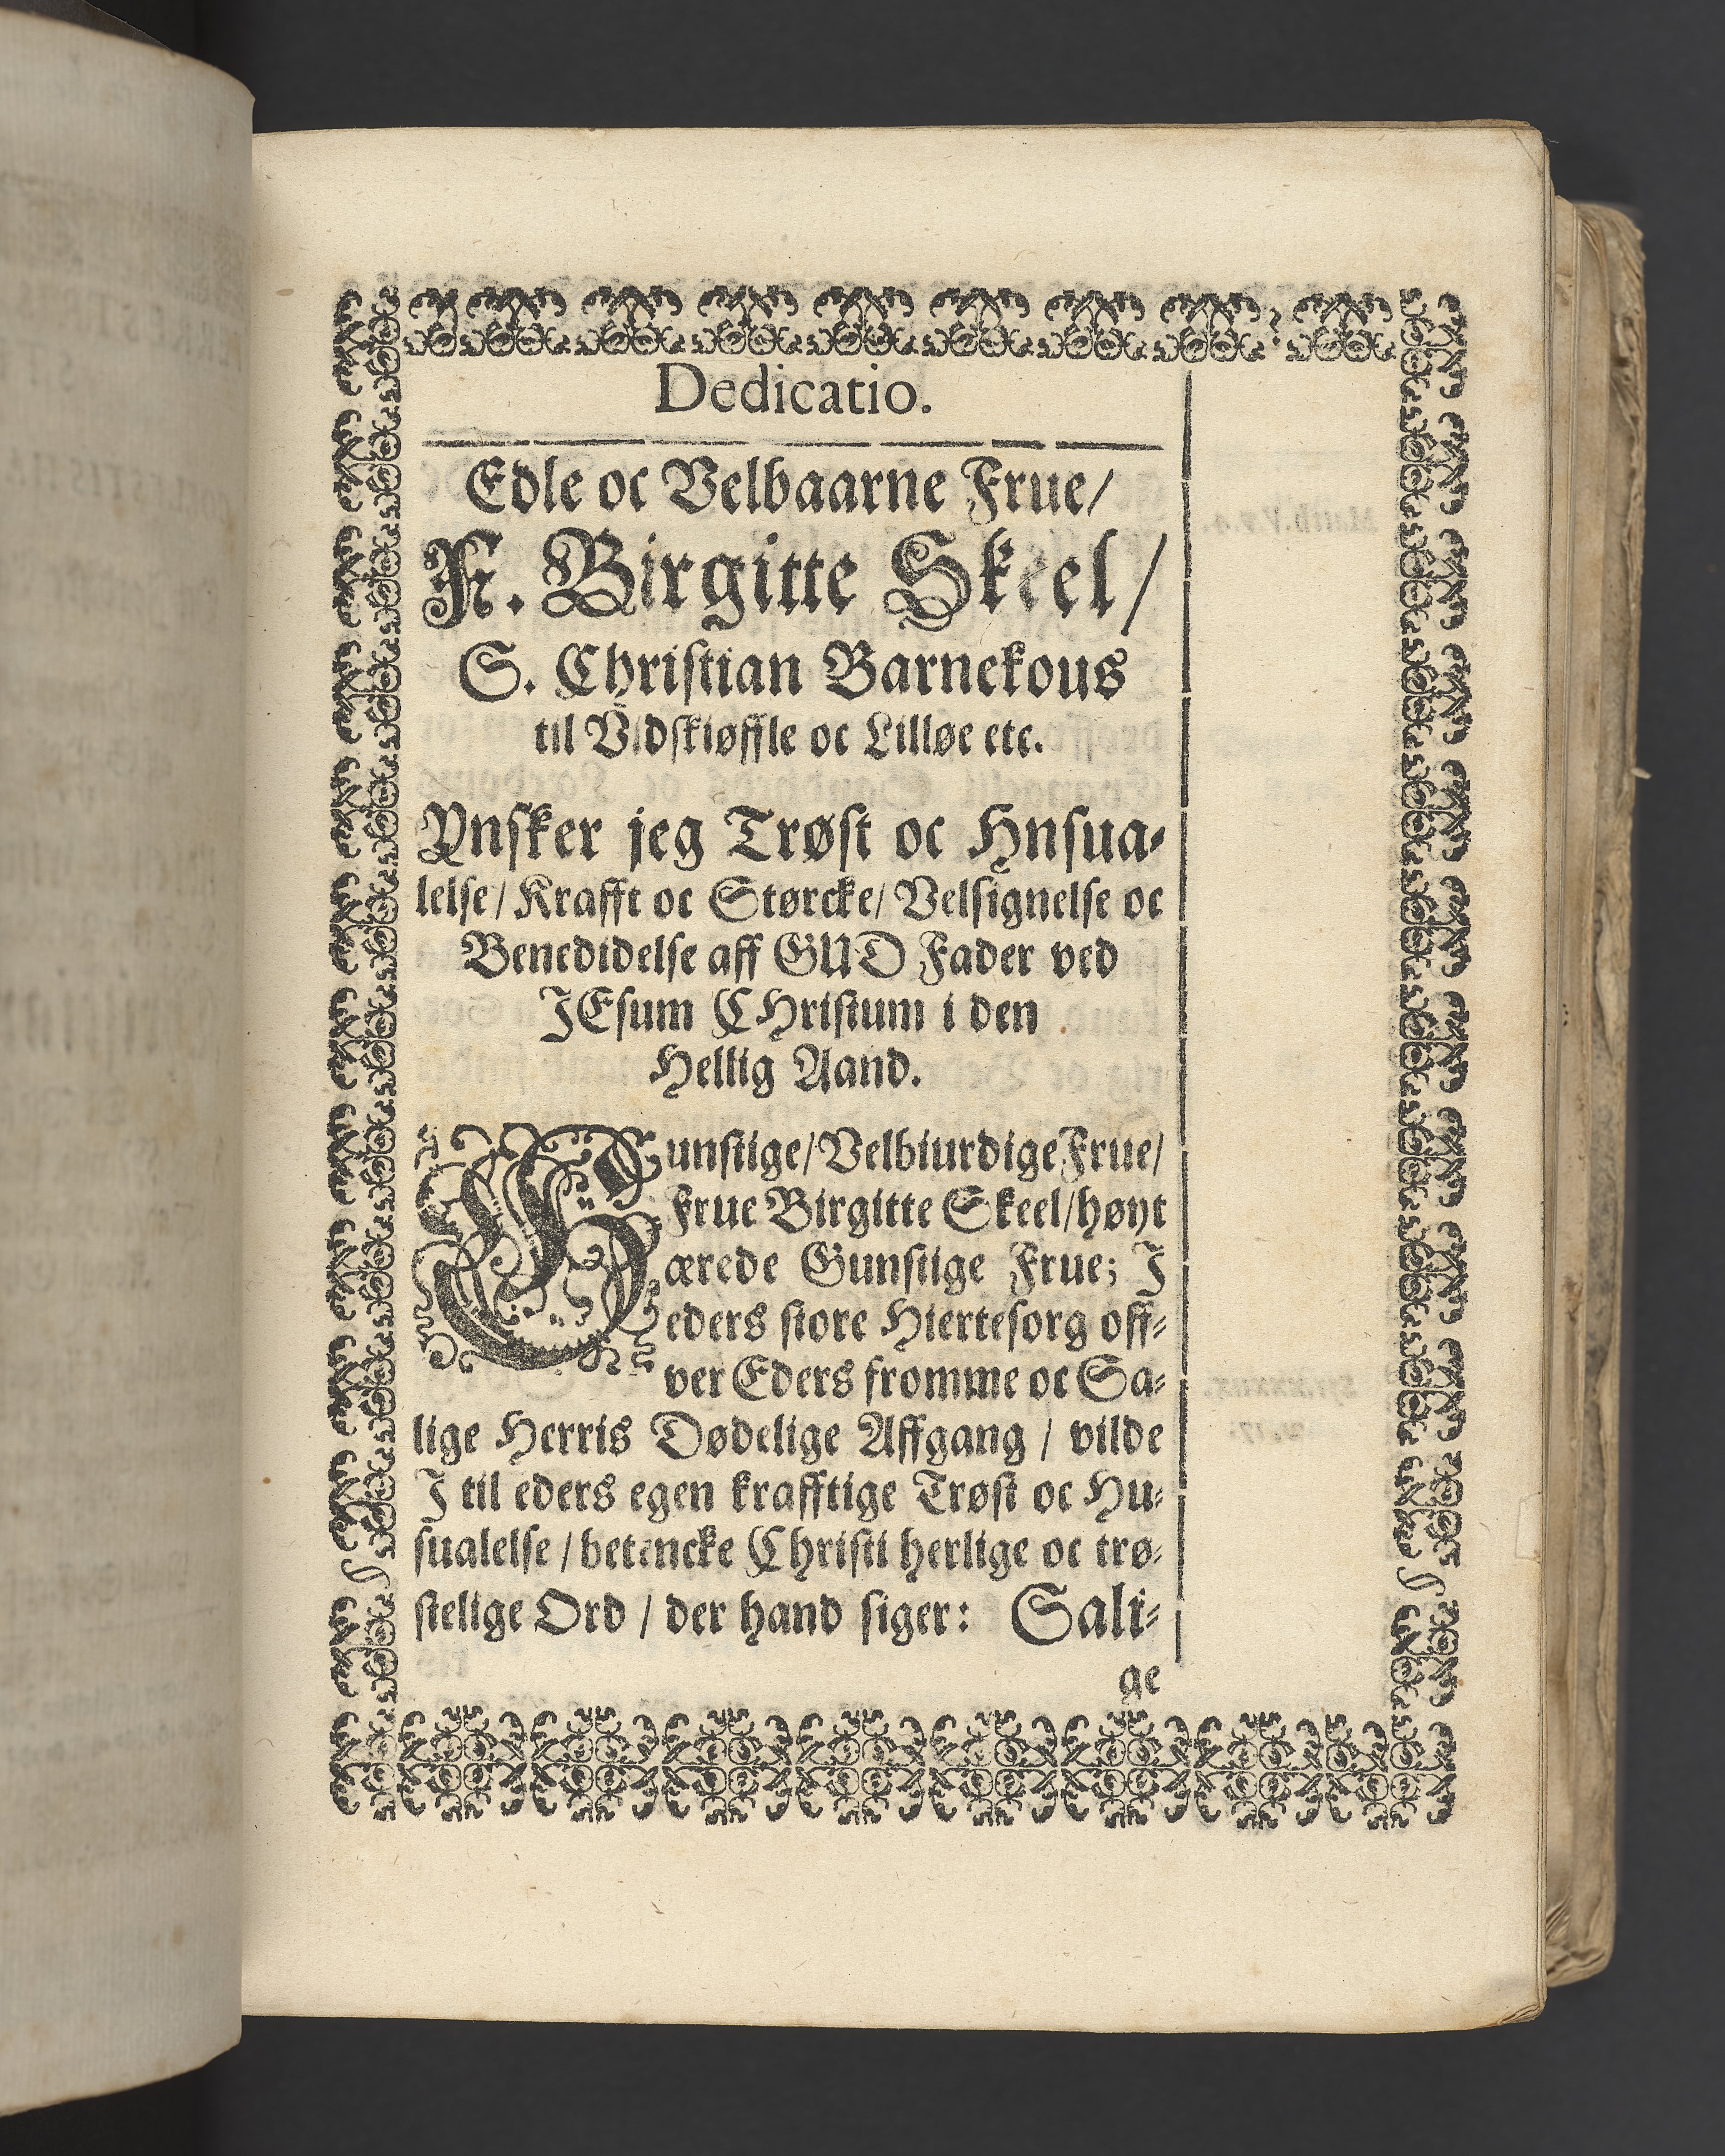 Dedicatio.
Edle oc Velbaarne Frue/
Fr. Birgitte Skeel/
S. Christian Barnekous
til Vidskiøffle oc Lilløe etc.
Ynsker jeg Trøst oc Hnsua-
lelse/ Krafft oc Størcke/ Velsignelse oc
Benedidelse aff GUD Fader ved
JEsum CHristum i den
Hellig Aand.
Gunstige/ Velbiurdige Frue/
Frue Birgitte Skeel/ høyt
ærede Gunstige Frue; J
eders store Hiertesorg off-
ver Eders fromme oc Sa-
lige Herris Dødelige Affgang / vilde
J til eders egen krafftige Trøst oc Hu-
sualelse / betencke Christi herlige oc trø-
stelige Ord / der hand siger: Sali-
ge